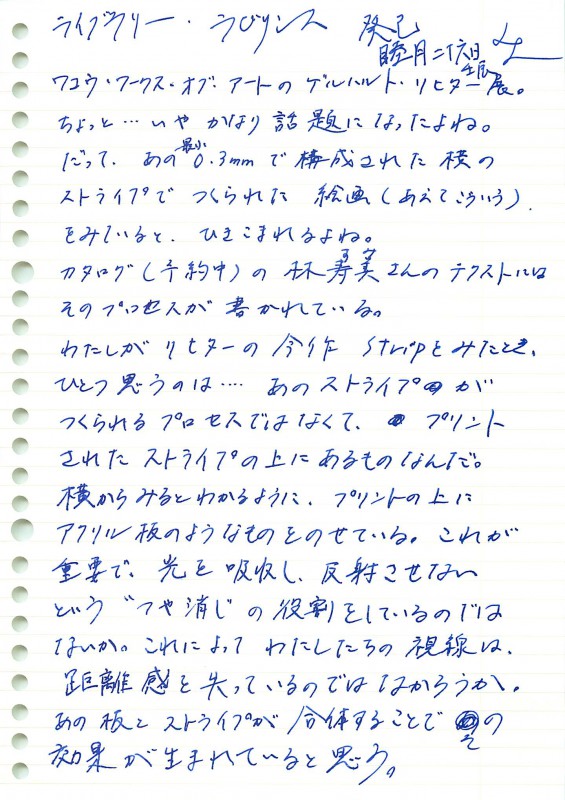 ライブラリー・ラビリンス 癸巳
睦月二六日
壬辰
ワコウ・ワークス・オブ・アートのゲルハルト・リヒター展。
ちょっと…いや かなり話題になったよね。
だって、あの最小0.3mmで構成された横の
ストライプで つくられた 絵画(あえてこういう)
をみていると、ひきこまれるよね。
カタログ(予約中)の林寿美さんのテクストには
すみ
そのプロセスが書かれている。
わたしがリヒターの今作 Stripをみたとき、
ひとつ思うのは…. あのストライプが
つくられるプロセスではなくて、プリント
されたストライプの上にあるものなんだ。
横からみるとわかるように、プリントの上に
アクリル板のようなものをのせている。これが
重要で、光を吸収し、反射させない
という“つや消し”の役割をしているのでは
ないか。これによって わたしたちの視線は、
距離感を失っているのではなかろうか。
あの板とストライプが合体することでその
効果が生まれていると思う。